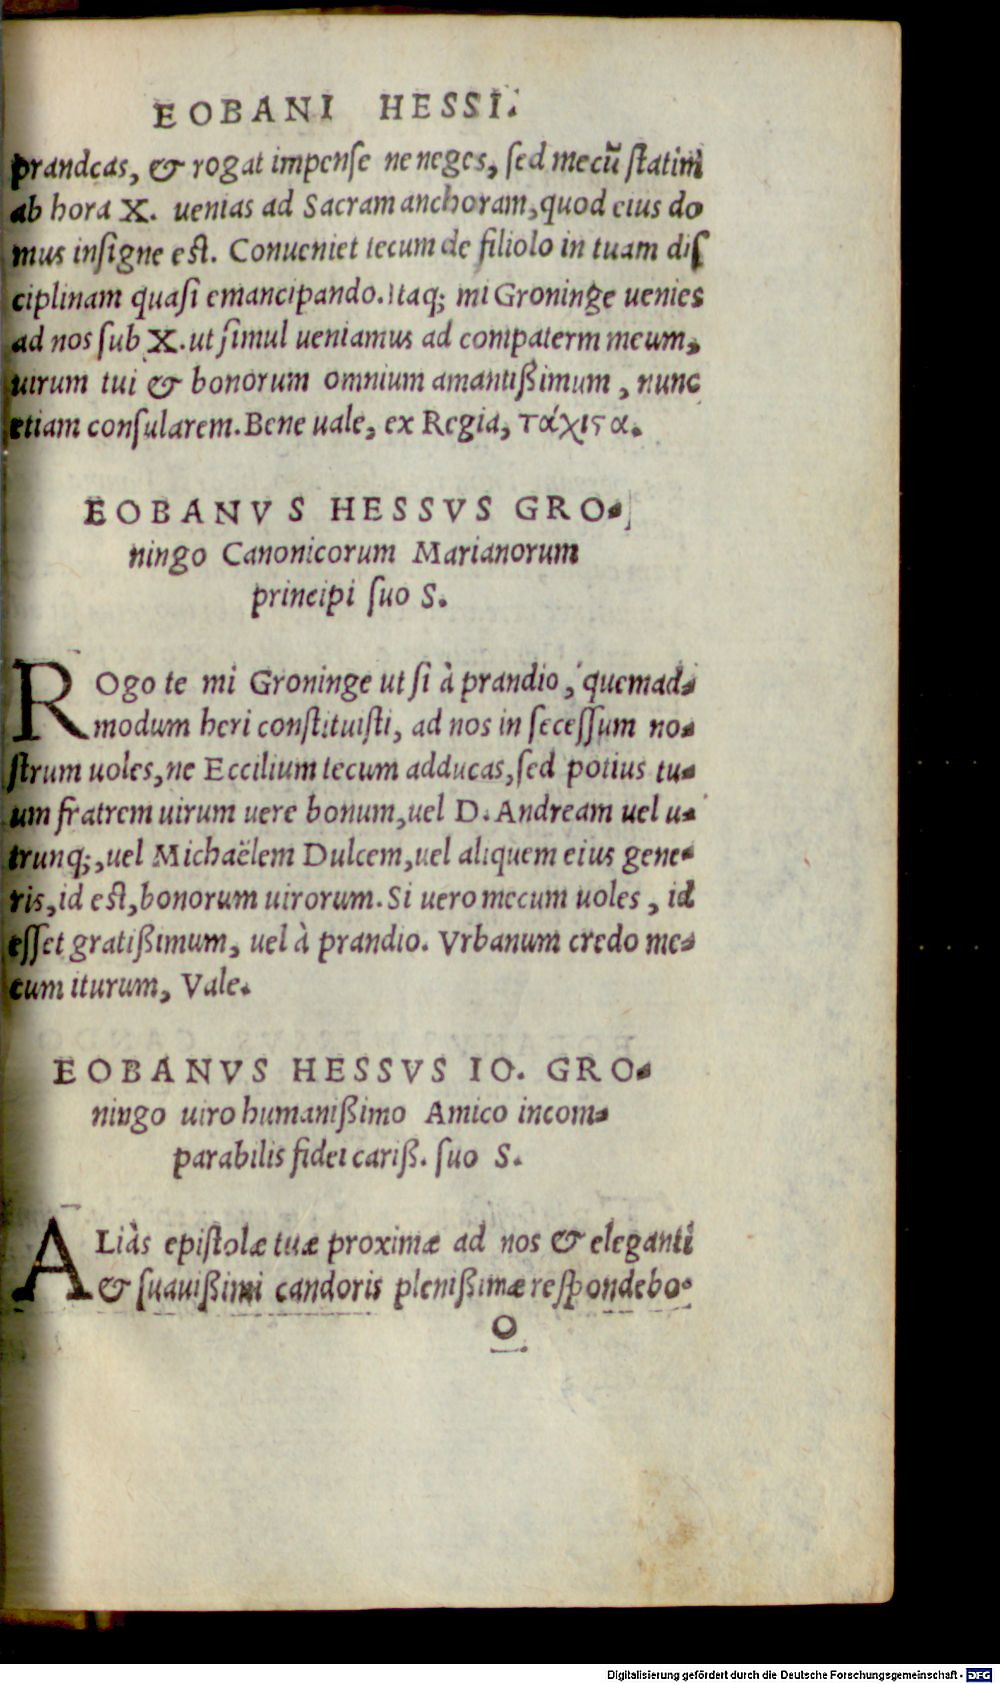 EOBANI HESSI.
prandeas, & rogat impense ne neges, sed mecũ statim
ab hora X. uenias ad Sacram anchoram, quod eius do
mus insigne est. Conueniet tecum de filiolo in tuam dis
ciplinam quasi emancipando. Itaq; mi Groninge uenies
ad nos sub X. ut simul ueniamus ad compaterm meum,
uirum tui & bonorum omnium amantißimum, nunc
etiam consularem. Bene uale, ex Regia, τάχιϛα.
EOBANVS HESSVS GRO-
ningo Canonicorum Marianorum
principi suo S.
ROgo te mi Groninge ut si à prandio, quemad-
modum heri constituisti, ad nos in secessum no-
strum uoles, ne Eccilium tecum adducas, sed potius tu-
um fratrem uirum uere bonum, uel D. Andream uel u-
trunq;, uel Michaëlem Dulcem, uel aliquem eius gene-
ris, id est, bonorum uirorum. Si uero mecum uoles, id
esset gratißimum, uel à prandio. Vrbanum credo me-
cum iturum, Vale.
EOBANVS HESSVS IO. GRO-
ningo uiro humanißimo Amico incom-
parabilis fidei cariß. suo S.
ALiàs epistolæ tuæ proximæ ad nos & eleganti
& suauißimi candoris plenißimæ respondebo.
O
Digitalisierung gefördert durch die Deutsche Forschungsgemeinschaft - DFG